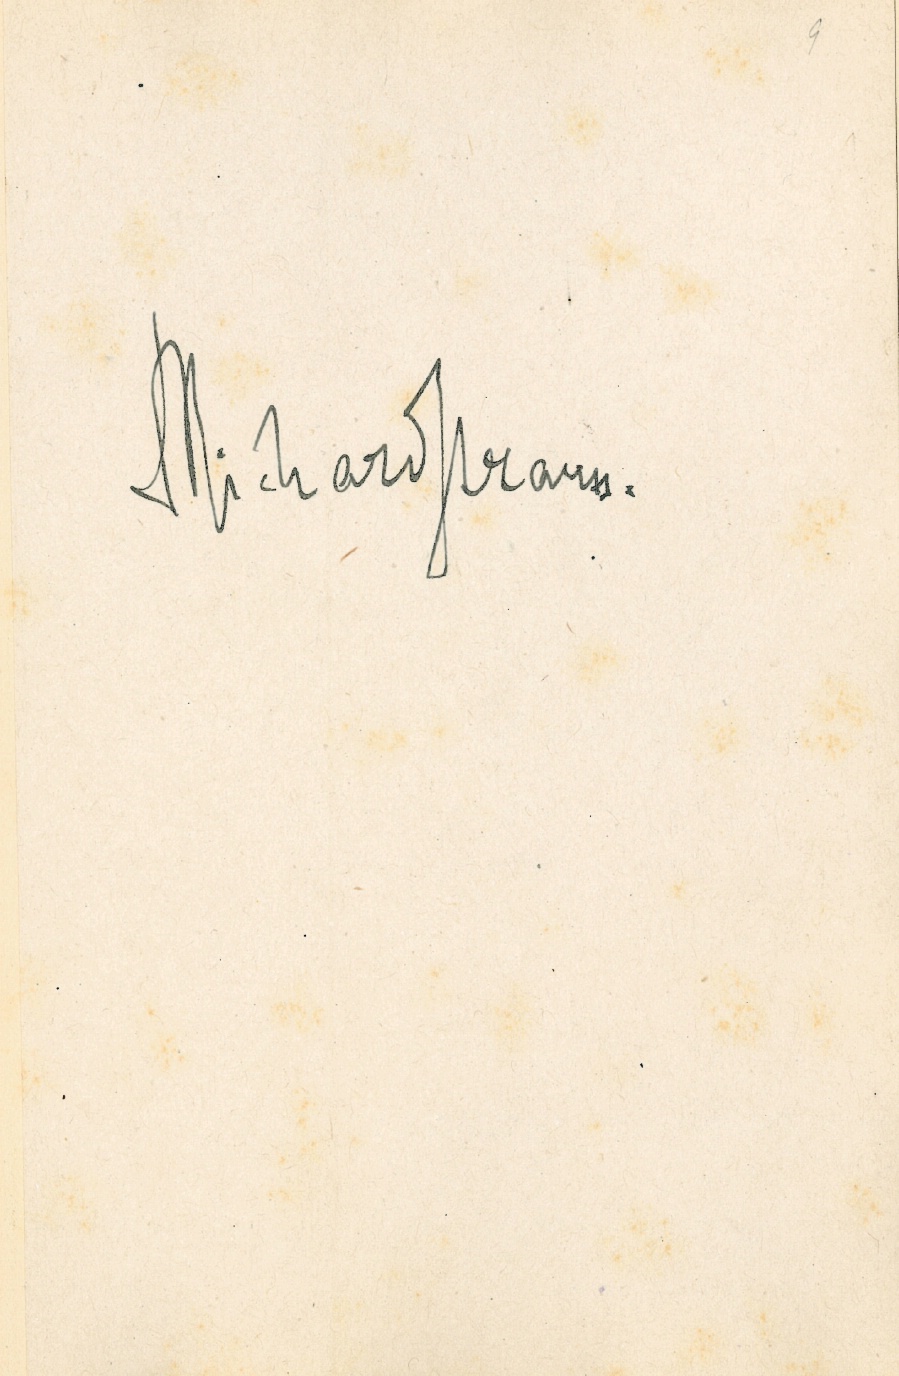 9
Richard Strauss.